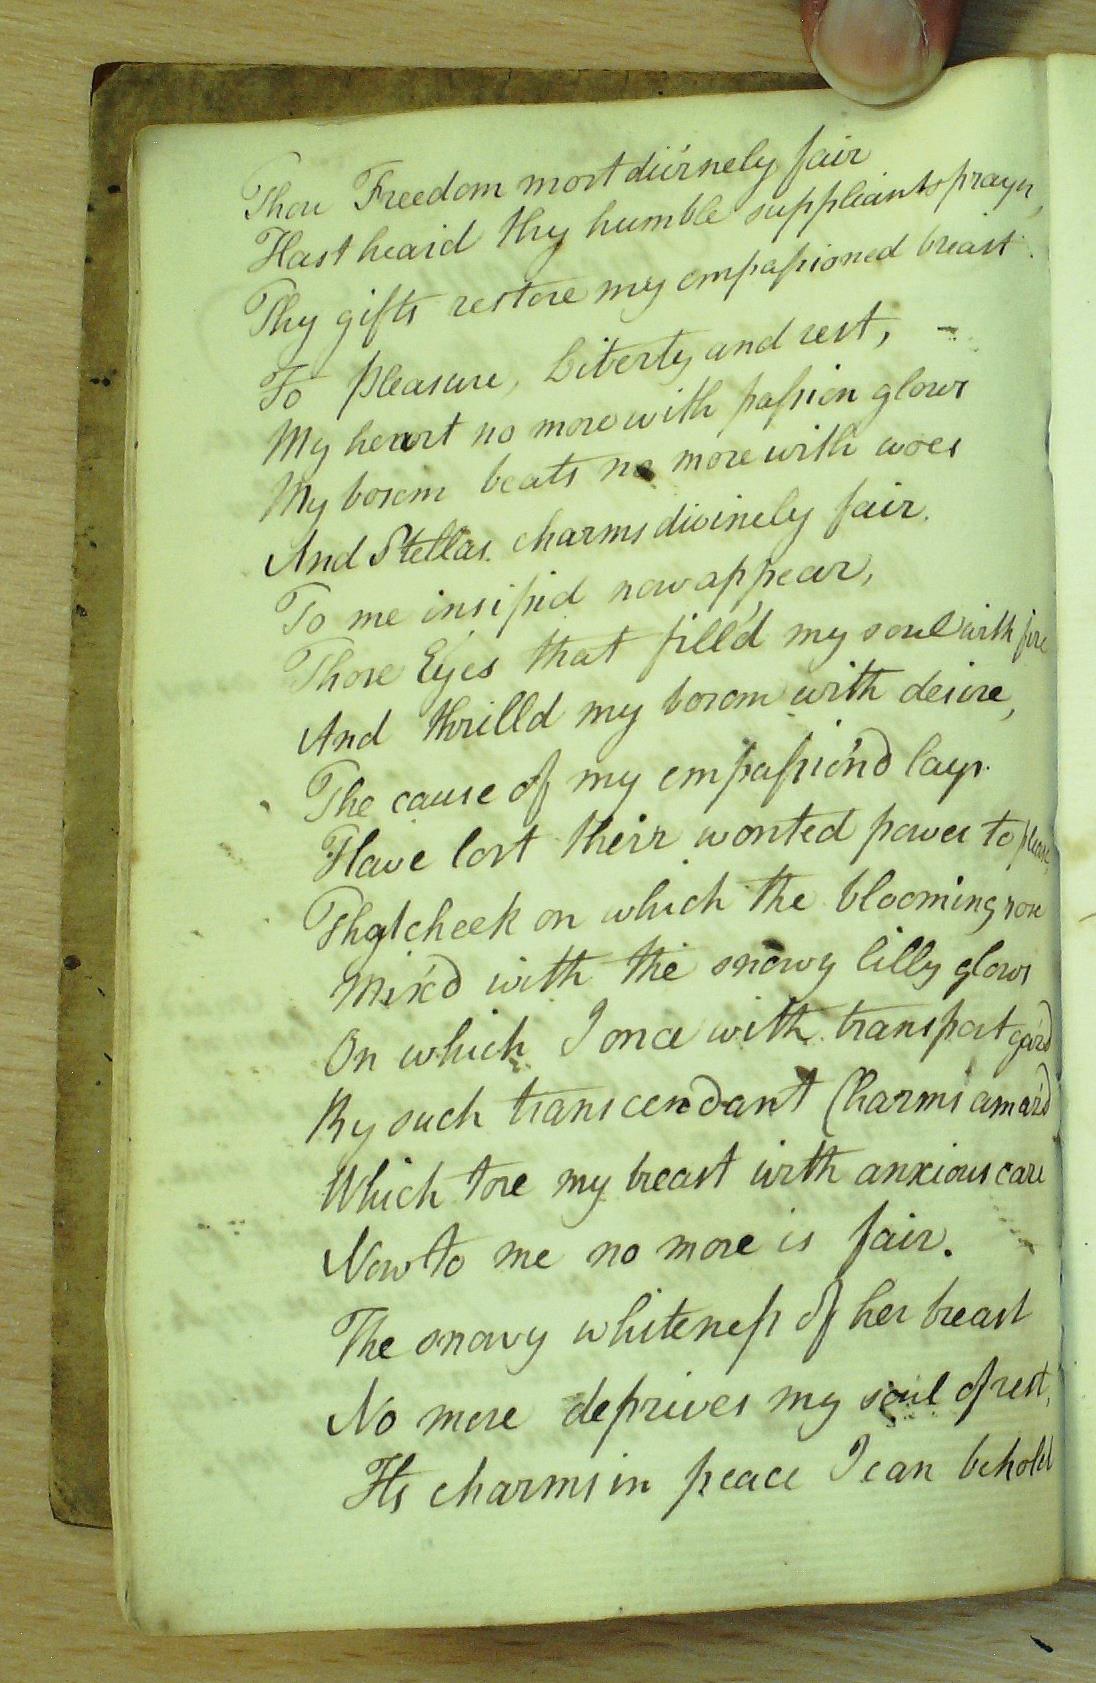 Thou Freedom most divinely fair
Hast heard thy humble suppliants prayer,
Thy gifts restore my empassioned breast.
To pleasure, Liberty and rest,
My heart no more with passion glows
My bosom beats no more with woes
And Stellas charms divinely fair.
To me insipid now appear,
Those Eyes that fill'd my soul with fire
And thrilld my bosom with desire,
The cause of my empassion'd lays.
Have lost their wonted power to please,
That cheek on which the blooming rose
Mix'd with the snowy lilly glows
On which I once with transport gaz'd
By such transcendant Charms amaz'd
Which tore my breast with anxious care
Now to me no more is fair.
The snowy whiteness of her breast
No more deprives my soul of rest,
Its charms in peace I can behold